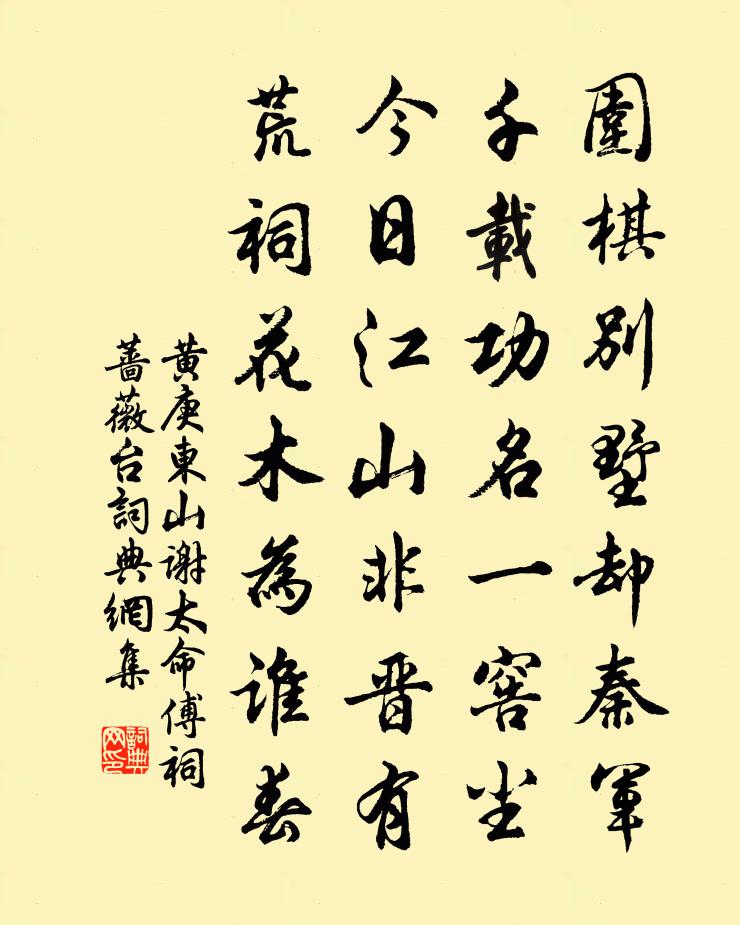 圍棋別墅却秦軍
千載功名一窖尘
今日江山非晋有
荒祠花木為誰春
黄庚東山谢太命傅祠
薔薇台詞典網集
詞典网印